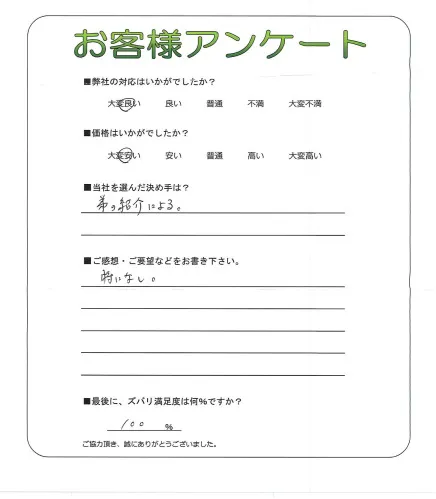 お客様アンケート
■弊社の対応はいかがでしたか?
大変良い 良い 普通 不満 大変不満
■価格はいかがでしたか?
大変安い 安い 普通 高い 大変高い
■当社を選んだ決め手は?
弟の紹介による。
■ご感想・ご要望などをお書き下さい。
特になし。
■最後に、ズバリ満足度は何%ですか?
100 %
ご協力頂き、誠にありがとうございました。